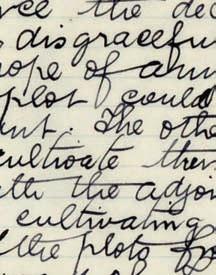 the dec
disgraceful
rope of ann
plot could
unt. The othe
cultivate then
the adjoi
cultivating
the plots f